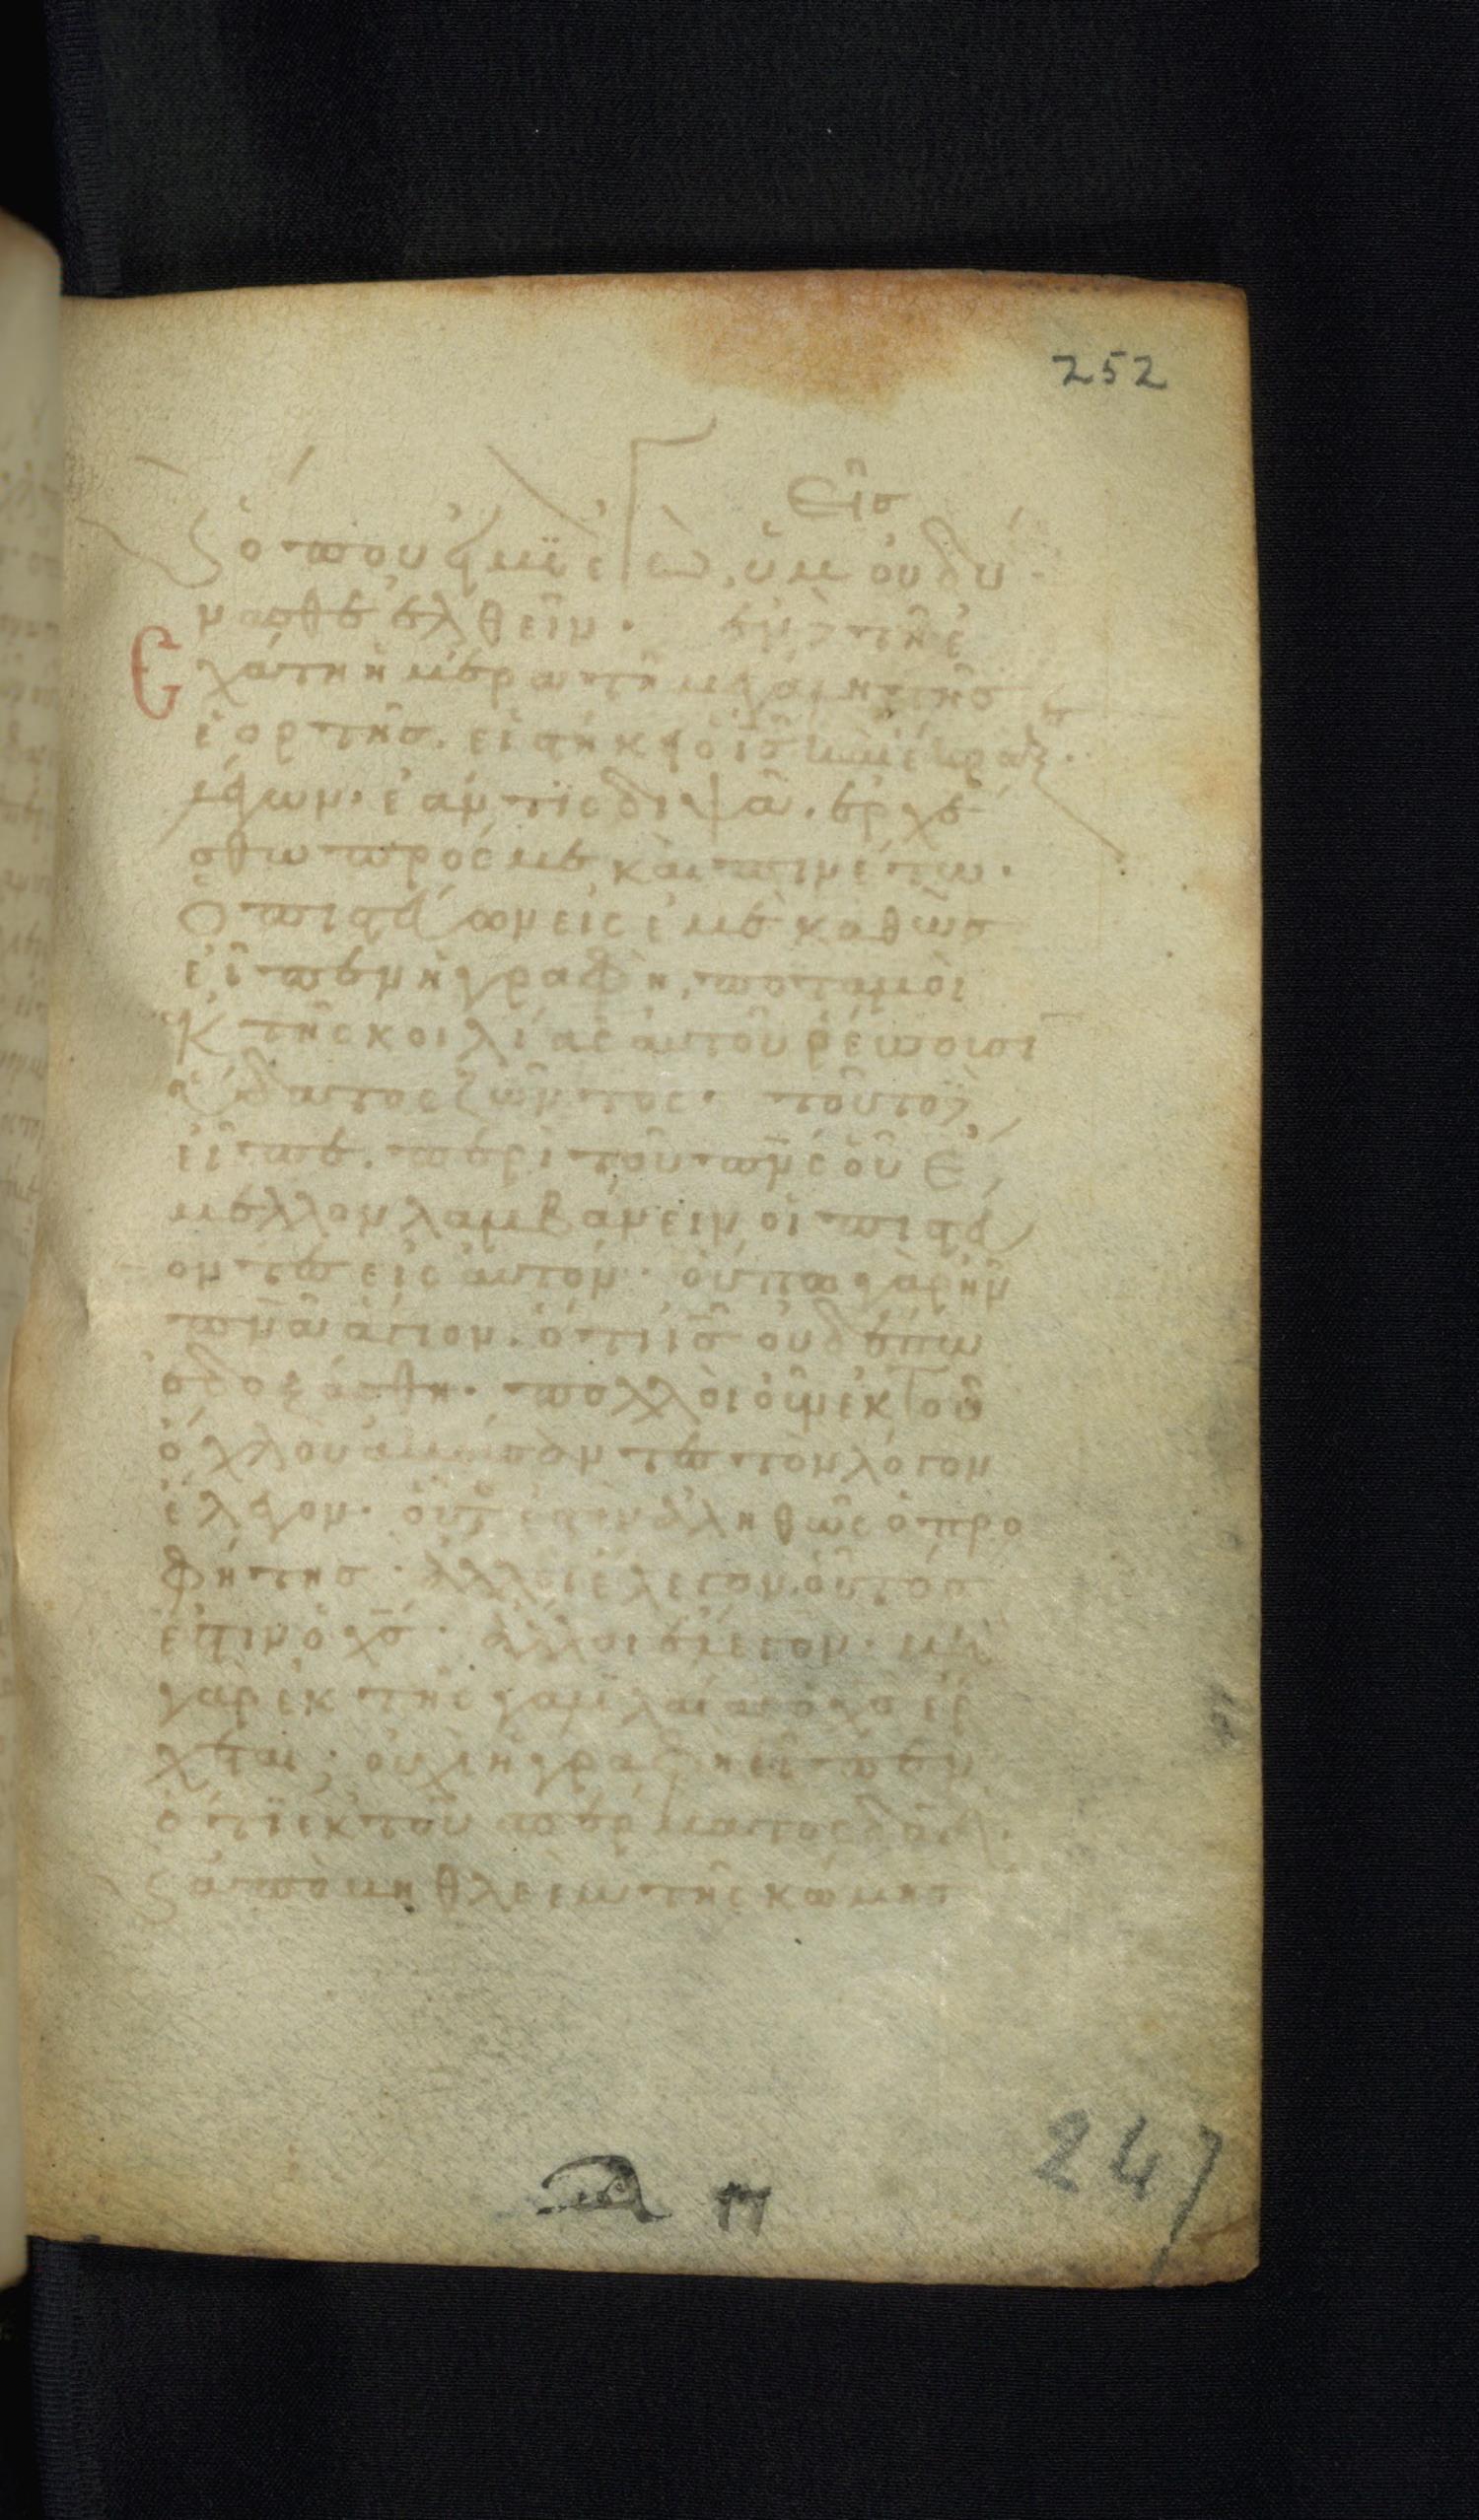 252
Εἰς
ϛ ὅπου εἰμὶ ἐγὼ, ὑμεῖς οὐ δύ
νασθε ἐλθεῖν· ἐν δὲ τῆ ἐ
σχάτη ἡμέρα τῆ μεγάλη τῆς
ἑορτῆς. εἱστήκει ὁ ις καὶ ἔκραξε
λέγων· ἐάν τις διψᾶ. ἐρχέ
σθω πρός με καὶ πινέτω.
Ὁ πιστεύων εἰς ἐμὲ καθὼς
εἶπεν ἡ γραφὴ, ποταμοὶ
ἐκ τῆς κοιλίας αὐτοῦ ῥεύσουσι
ὕδατος ζῶντος. τοῦτο δὲ
εἶπε. περὶ τοῦ πνς οὗ ἔ
μελλον λαμβάνειν οἱ πιστεύ
οντες εἰς αὐτόν. οὔπω γὰρ ἦν
πνα ἅγιον. ὅτι ις οὐδέπω
ἐδοξάσθη. πολλοὶ οὖν ἐκ τοῦ
ὄχλου ἀκούσαντες τὸν λόγον
ἔλεγον. οὗτός ἐστιν ἀληθῶς ὁ προ
φήτης. ἄλλοι ἔλεγον οὗτός
ἐστιν ὁ χς. ἄλλοι ἔλεγον. μὴ
γὰρ ἐκ τῆς γαλιλαίας ὁ χς ἔρ
χεται; οὐχὶ ἡ γραφὴ εἶπεν
ὅτι ἐκ τοῦ σπέρματος δαδ.
ϛ ἀπὸ βηθλεὲμ τῆς κώμης
247